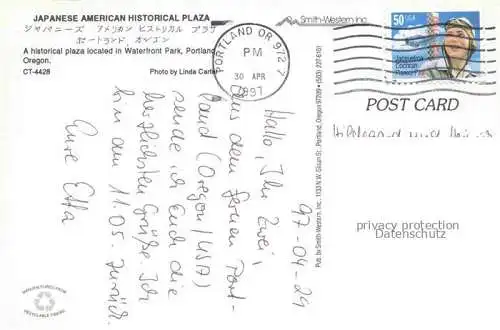 JAPANESE AMERICAN HISTORICAL PLAZA
ジャパニーズ アメリカン ヒストリカル プラザ
ポートランド オレゴン
A historical plaza located in Waterfront Park, Portland,
Oregon.
CT-4428 Photo by Linda Carter
Smith-Western Inc.
PORTLAND OR 972
PM
30 APR
1997
50 USA
Jacqueline
Cochran
Pioneer Pilot
POST CARD
97-04-29
Hallo, Ihr Zwei,
aus dem fernen Port-
land (Oregon/USA)
sende ich Euch die
herzlichsten Grüße. Ich
bin am 11.05. zurück.
Eure Etta
Pub. by Smith-Western, Inc., 1133 N.W. Glisan St., Portland, Oregon 97209 • (503)
Hildegard und
privacy protection
Datenschutz
MANUFACTURED FROM
RECYCLABLE FIBERS